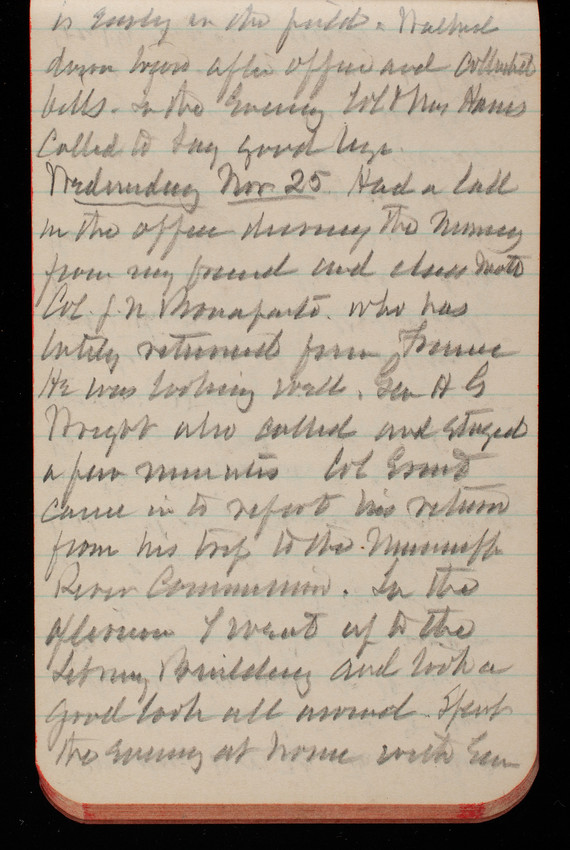 is early in the field. Walked
down town after office and collected
bills. In the Evening Col & Mrs Hains
Called to say good bye.
Wednesday Nov. 25 Had a call
in the office during the Morning
from my friend and class mate
Col. J. N. Bonaparte. who has
lately returned from France
He was looking well. Gen H G
Wright also called and stayed
a few minutes Col Ernst
came in to report his return
from his trip to the
River Commission. In the
afternoon I went up to the
Library Building and took a
good look all around. Spent
the Evening at home with Gen